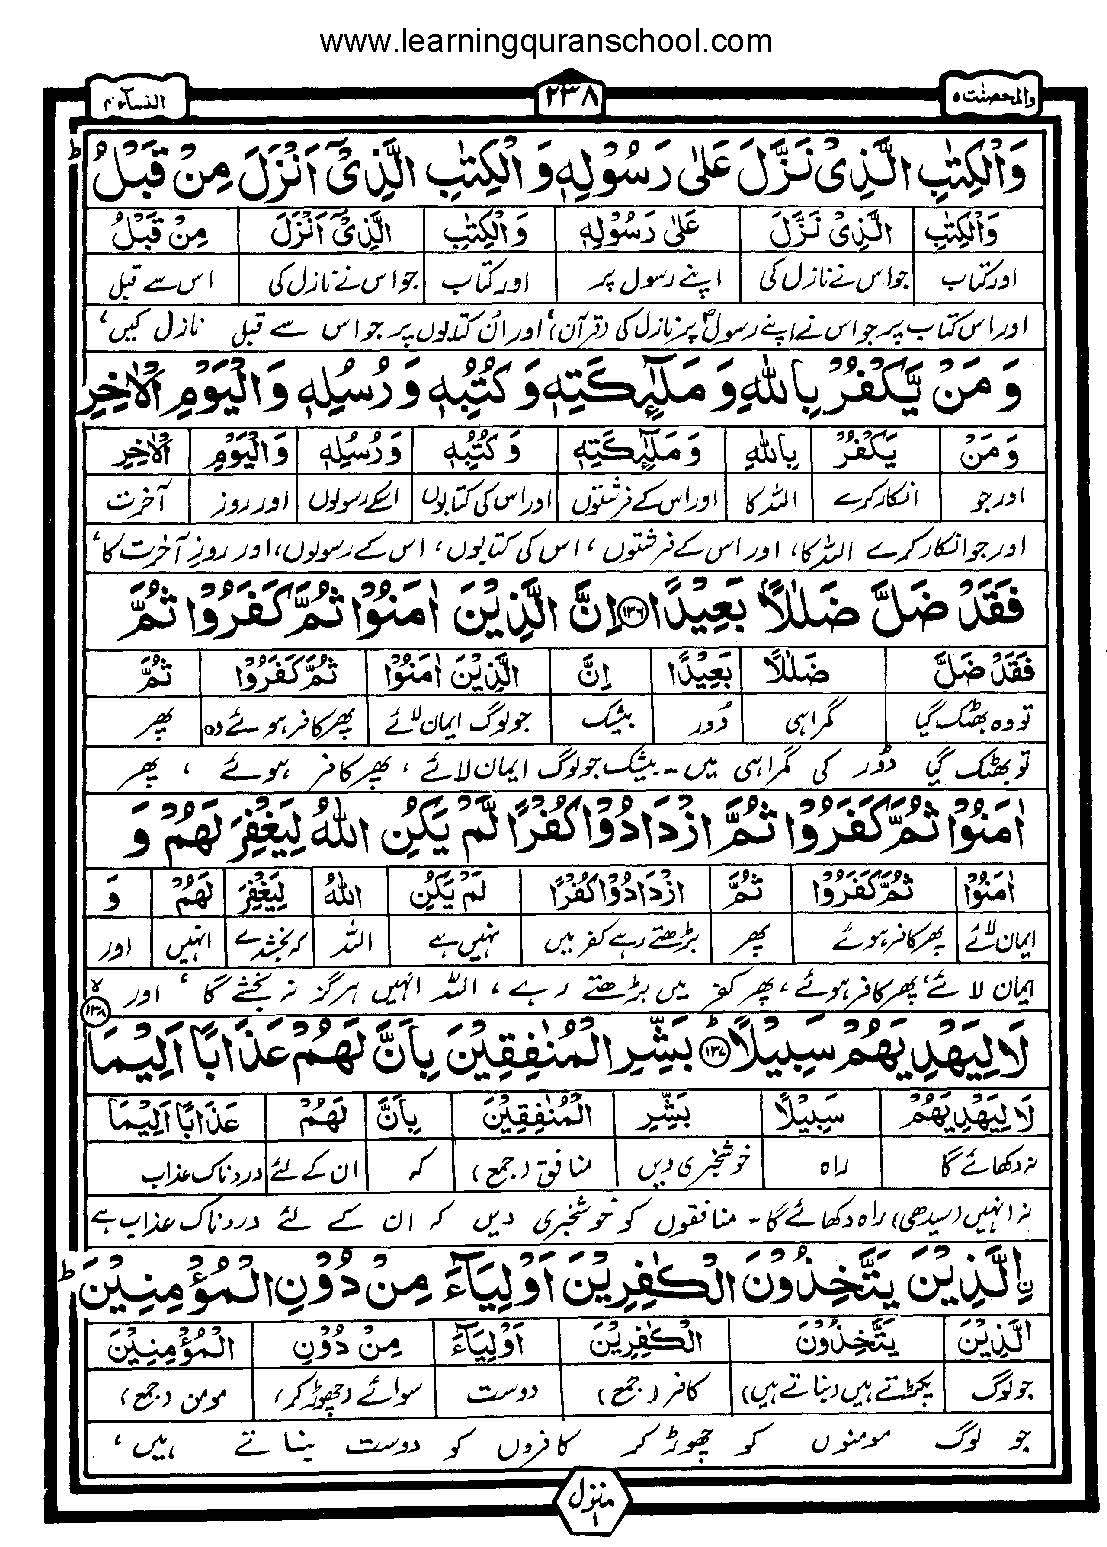 www.learningquranschool.com
والمحصنٰت ۵ ۲۳۸ النسآء ۴
وَالْكِتٰبِ الَّذِیْ نَزَّلَ عَلٰی رَسُوْلِهٖ وَ الْكِتٰبِ الَّذِیْۤ اَنْزَلَ مِنْ قَبْلُ ؕ
وَالْكِتٰبِ الَّذِیْ نَزَّلَ عَلٰی رَسُوْلِهٖ وَالْكِتٰبِ الَّذِیْۤ اَنْزَلَ مِنْ قَبْلُ
اور کتاب جو اس نے نازل کی اپنے رسول پر اور کتاب جو اس نے نازل کی اس سے قبل
اور اس کتاب پر جو اس نے اپنے رسولؐ پر نازل کی (قرآن)، اور اُن کتابوں پر جو اس سے قبل نازل کیں،
وَ مَنْ یَّكْفُرْ بِاللّٰهِ وَ مَلٰٓئِكَتِهٖ وَ كُتُبِهٖ وَ رُسُلِهٖ وَ الْیَوْمِ الْاٰخِرِ
وَ مَنْ یَكْفُرْ بِاللّٰهِ وَ مَلٰٓئِكَتِهٖ وَ كُتُبِهٖ وَ رُسُلِهٖ وَالْیَوْمِ الْاٰخِرِ
اور جو انکار کرے اللہ کا اور اس کے فرشتوں اور اس کی کتابوں اسکے رسولوں اور روز آخرت
اور جو انکار کرے اللہ کا، اور اس کے فرشتوں، اس کی کتابوں، اس کے رسولوں، اور روزِ آخرت کا،
فَقَدْ ضَلَّ ضَلٰلًۢا بَعِیْدًا ﴿۱۳۶﴾ اِنَّ الَّذِیْنَ اٰمَنُوْا ثُمَّ كَفَرُوْا ثُمَّ
فَقَدْ ضَلَّ ضَلٰلًا بَعِیْدًا اِنَّ الَّذِیْنَ اٰمَنُوْا ثُمَّ كَفَرُوْا ثُمَّ
تو وہ بھٹک گیا گمراہی دُور بیشک جو لوگ ایمان لائے پھر کافر ہوئے وہ پھر
تو بھٹک گیا دُور کی گمراہی میں۔ بیشک جو لوگ ایمان لائے، پھر کافر ہوئے، پھر
اٰمَنُوْا ثُمَّ كَفَرُوْا ثُمَّ ازْدَادُوْا كُفْرًا لَّمْ یَكُنِ اللّٰهُ لِیَغْفِرَ لَهُمْ وَ
اٰمَنُوْا ثُمَّ كَفَرُوْا ثُمَّ ازْدَادُوْا كُفْرًا لَمْ یَكُنِ اللّٰهُ لِیَغْفِرَ لَهُمْ وَ
ایمان لائے پھر کافر ہوئے پھر بڑھتے رہے کفر میں نہیں ہے اللہ کہ بخشدے انہیں اور
ایمان لائے، پھر کافر ہوئے، پھر کفر میں بڑھتے رہے، اللہ انہیں ہرگز نہ بخشے گا، اور
لَا لِیَهْدِیَهُمْ سَبِیْلًا ؕ﴿۱۳۷﴾ بَشِّرِ الْمُنٰفِقِیْنَ بِاَنَّ لَهُمْ عَذَابًا اَلِیْمَا ۙ﴿۱۳۸﴾
لَا لِیَهْدِیَهُمْ سَبِیْلًا بَشِّرِ الْمُنٰفِقِیْنَ بِاَنَّ لَهُمْ عَذَابًا اَلِیْمَا
نہ دکھائے گا راہ خوشخبری دیں منافق (جمع) کہ ان کے لئے دردناک عذاب
نہ انہیں (سیدھی) راہ دکھائے گا۔ منافقوں کو خوشخبری دیں کہ ان کے لئے دردناک عذاب ہے
اِ۟لَّذِیْنَ یَتَّخِذُوْنَ الْكٰفِرِیْنَ اَوْلِیَآءَ مِنْ دُوْنِ الْمُؤْمِنِیْنَ ؕ
الَّذِیْنَ یَتَّخِذُوْنَ الْكٰفِرِیْنَ اَوْلِیَآءَ مِنْ دُوْنِ الْمُؤْمِنِیْنَ
جو لوگ پکڑتے ہیں (بناتے ہیں) کافر (جمع) دوست سوائے (چھوڑ کر) مومن (جمع)
جو لوگ مومنوں کو چھوڑ کر کافروں کو دوست بناتے ہیں،
منزل ۱